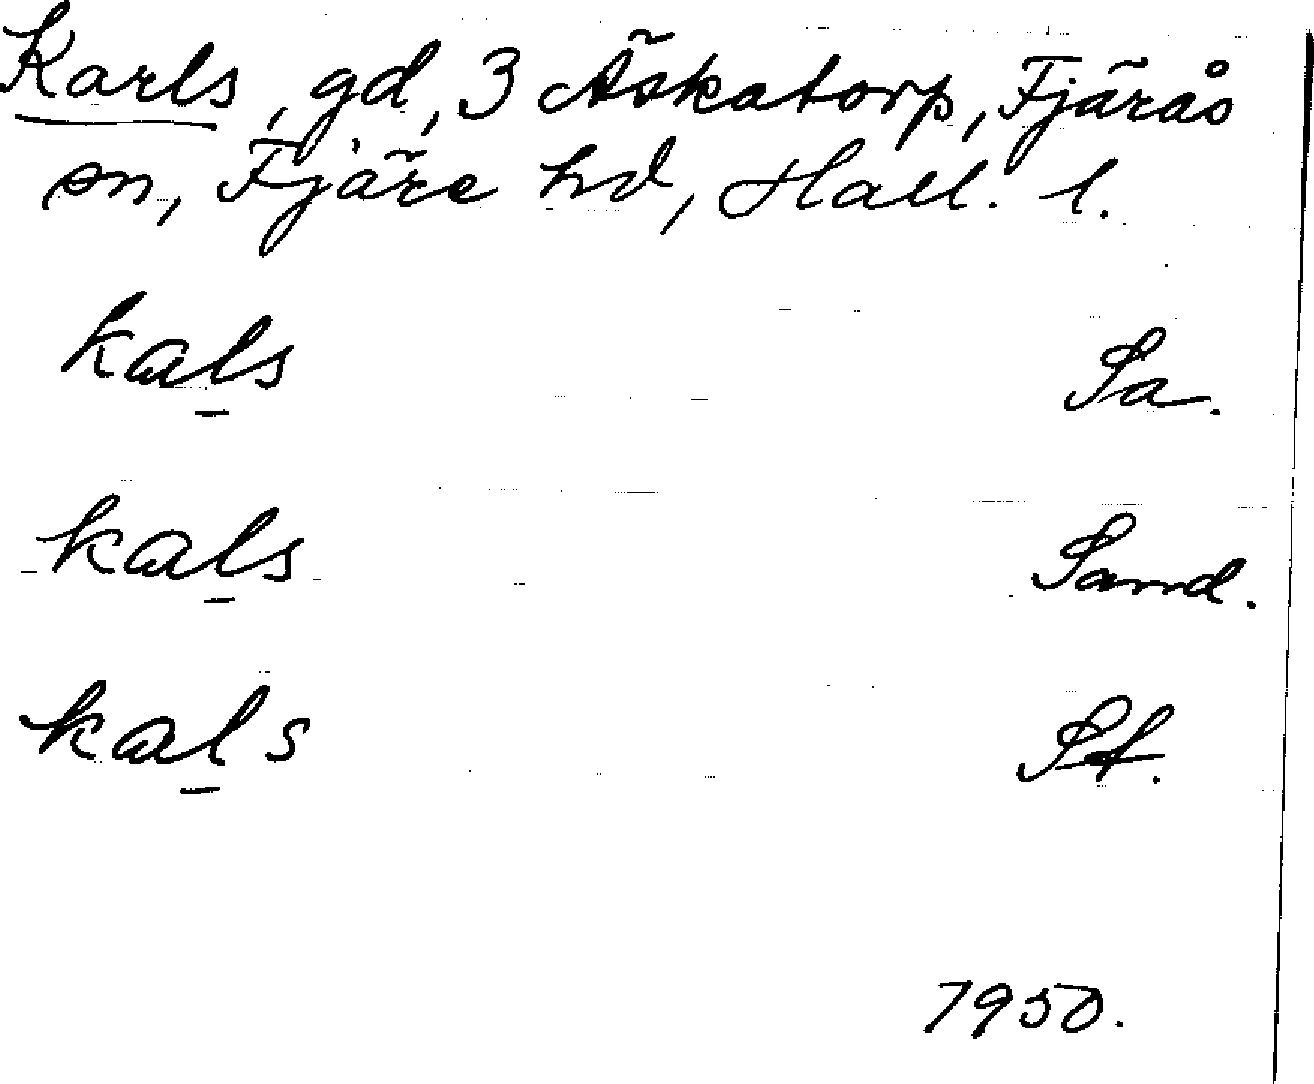 Karls, gd, 3 Äskatorp, Fjärås
sn, Fjäre hd, Hall. l.
kals Sa.
kals Sand.
kals Sf.
1950.